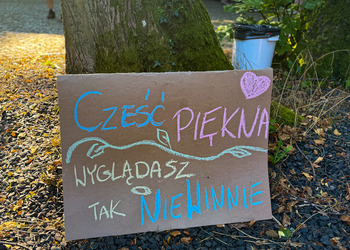 CZEŚĆ PIĘKNA
WYGLĄDASZ
TAK NIEWINNIE